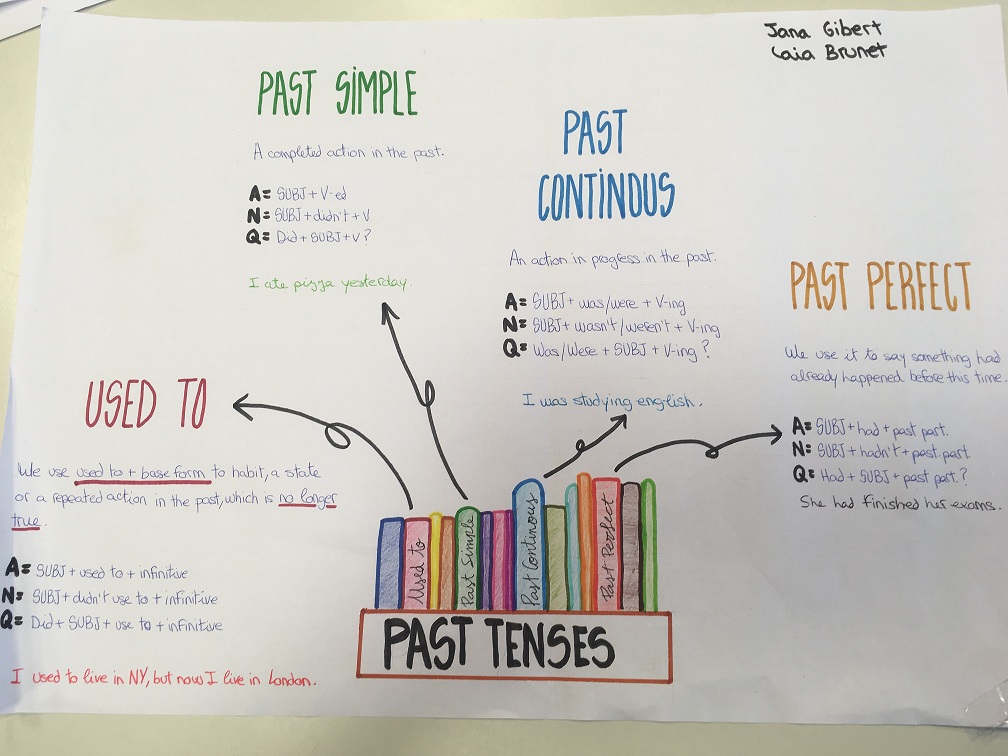 Jana Gibert
Laia Brunet
PAST SIMPLE
A completed action in the past.
A= SUBJ + V-ed
N= SUBJ + didn't + V
Q= Did + SUBJ + V?
I ate pizza yesterday.
PAST
CONTINOUS
An action in progress in the past.
A= SUBJ + was/were + V-ing
N= SUBJ + wasn't/weren't + V-ing
Q= Was/Were + SUBJ + V-ing?
I was studying english.
PAST PERFECT
We use it to say something had
already happened before this time.
A= SUBJ + had + past part.
N= SUBJ + hadn't + past part.
Q= Had + SUBJ + past part.?
She had finished her exams.
USED TO
We use used to + base form to habit, a state
or a repeated action in the past, which is no longer
true.
A= SUBJ + used to + infinitive
N= SUBJ + didn't use to + infinitive
Q= Did + SUBJ + use to + infinitive
I used to live in NY, but now I live in London.
Used to
Past Simple
Past Continous
Past Perfect
PAST TENSES